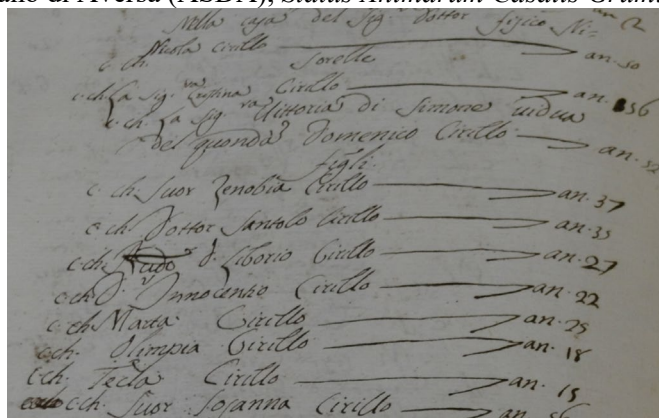 Archivio Diocesano di Aversa (ASDA), Status Animarum Casalis Grumi
Nella casa del Sig. Dottor fisico Ni-
c. ch. Nicola Cirillo an. 50
Sorelle
c. ch. La Sig.ra Cirillo an. 56
c. ch. La Sig.ra Vittoria di Simone vidua
del quonda Domenico Cirillo an. 52
figli
c. ch. Suor Zenobia Cirillo an. 37
c. ch. Dottor Santolo Cirillo an. 33
c. ch. D. Liborio Cirillo an. 27
c. ch. D. Innocenzo Cirillo an. 22
c. ch. Marta Cirillo an. 25
c. ch. Olimpia Cirillo an. 18
c. ch. Tecla Cirillo an. 15
c. ch. Suor Sosanna Cirillo an. 56